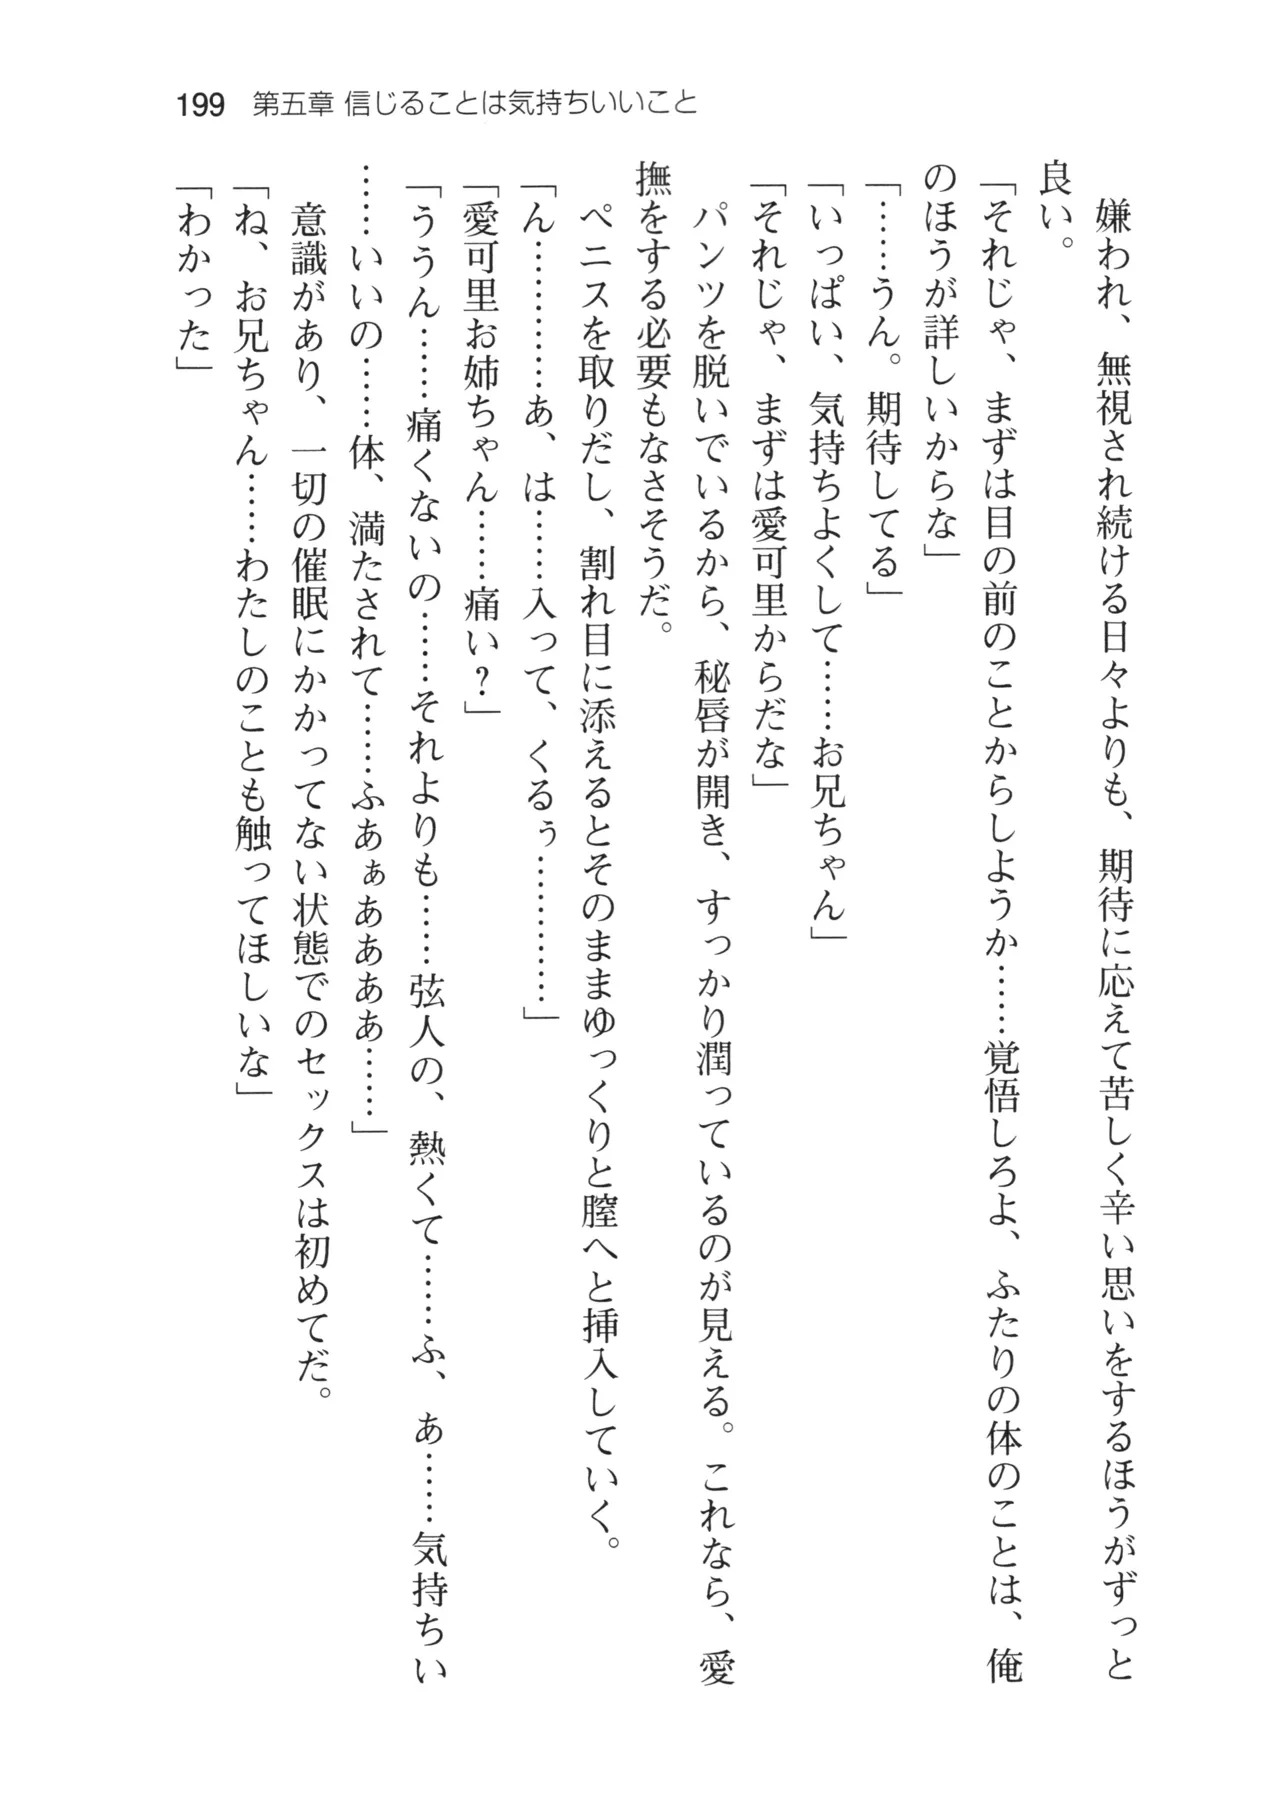 199 第五章 信じることは気持ちいいこと
嫌われ、無視され続ける日々よりも、期待に応えて苦しく辛い思いをするほうがずっと
良い。
「それじゃ、まずは目の前のことからしようか……覚悟しろよ、ふたりの体のことは、俺
のほうが詳しいからな」
「……うん。期待してる」
「いっぱい、気持ちよくして……お兄ちゃん」
「それじゃ、まずは愛可里からだな」
パンツを脱いでいるから、秘唇が開き、すっかり潤っているのが見える。これなら、愛
撫をする必要もなさそうだ。
ペニスを取りだし、割れ目に添えるとそのままゆっくりと膣へと挿入していく。
「ん…………あ、は……入って、くるぅ…………」
「愛可里お姉ちゃん……痛い？」
「ううん……痛くないの……それよりも……弦人の、熱くて……ふ、あ……気持ちい
……いいの……体、満たされて……ふあぁああああ……」
意識があり、一切の催眠にかかってない状態でのセックスは初めてだ。
「ね、お兄ちゃん……わたしのことも触ってほしいな」
「わかった」